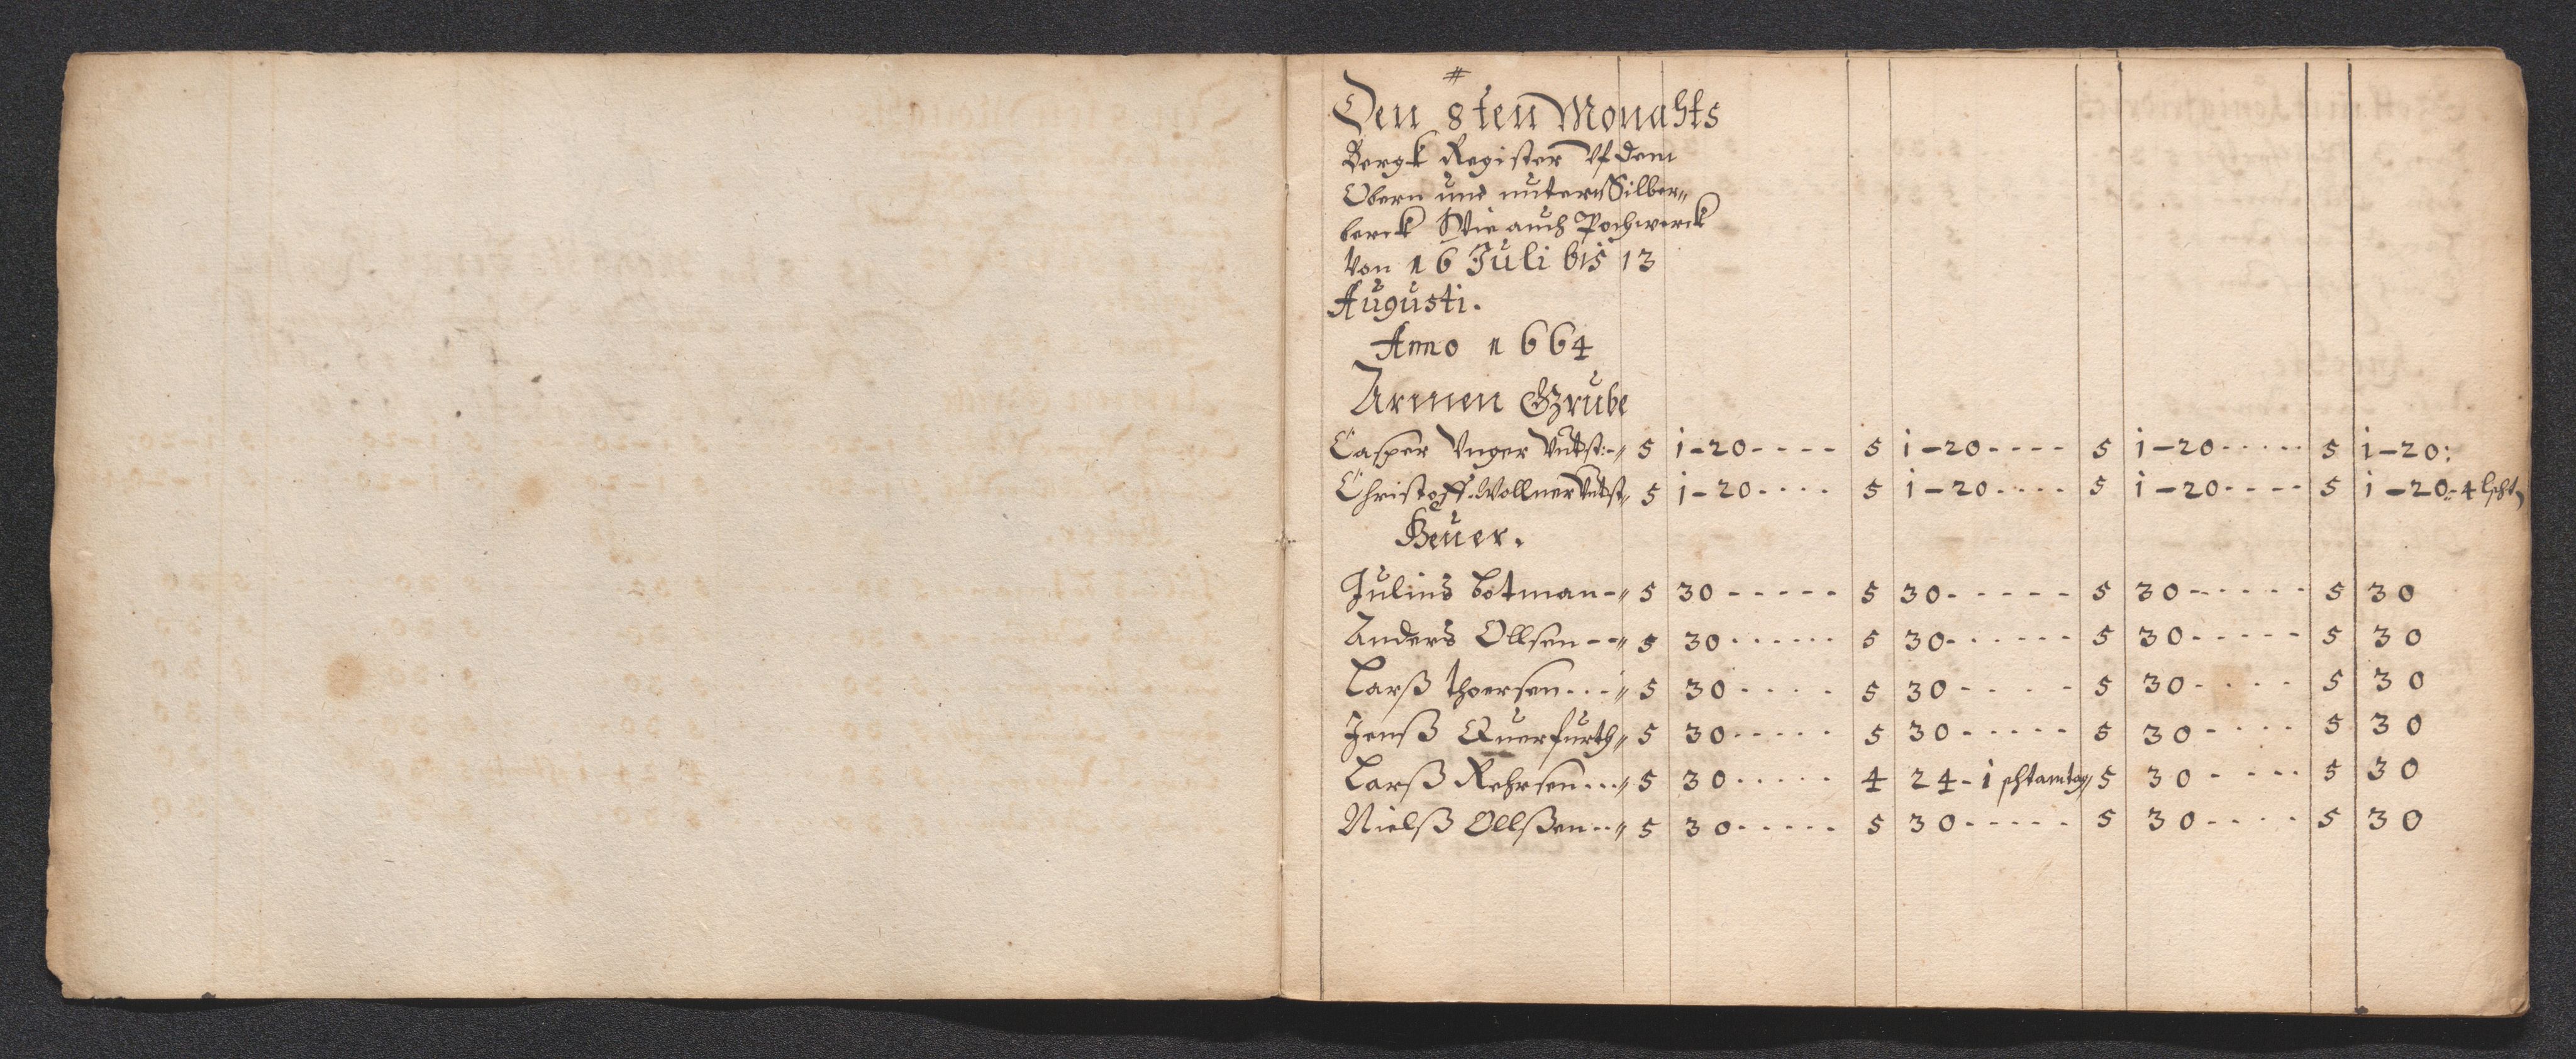 #
Den 8ten Monahts
Bergk Register Vf dem
Obern und untern Silber„
berck Wie auch Pochwerck
Von 16 Juli bis 13
Augusti.
Anno 1664
Armen Grube
Casper Unger Vntst:-„ 5 1-20---- 5 1-20---- 5 1-20----- 5 1-20:
Christoff Wollner Vntst„ 5 1-20---- 5 1-20---- 5 1-20---- 5 1-20:-4
Heuer.
Julius botman-„ 5 30----- 5 30----- 5 30----- 5 30
Anders Ollsen--„ 5 30------ 5 30------ 5 30----- 5 30
Larß thorsen...„ 5 30---- 5 30---- 5 30---- 5 30
Jenß Querfurth„ 5 30----- 5 30----- 5 30---- 5 30
Larß Rehrsen...„ 5 30----- 4 24-1 5 30---- 5 30
Nielß Ollßen..„ 5 30----- 5 30----- 5 30---- 5 30